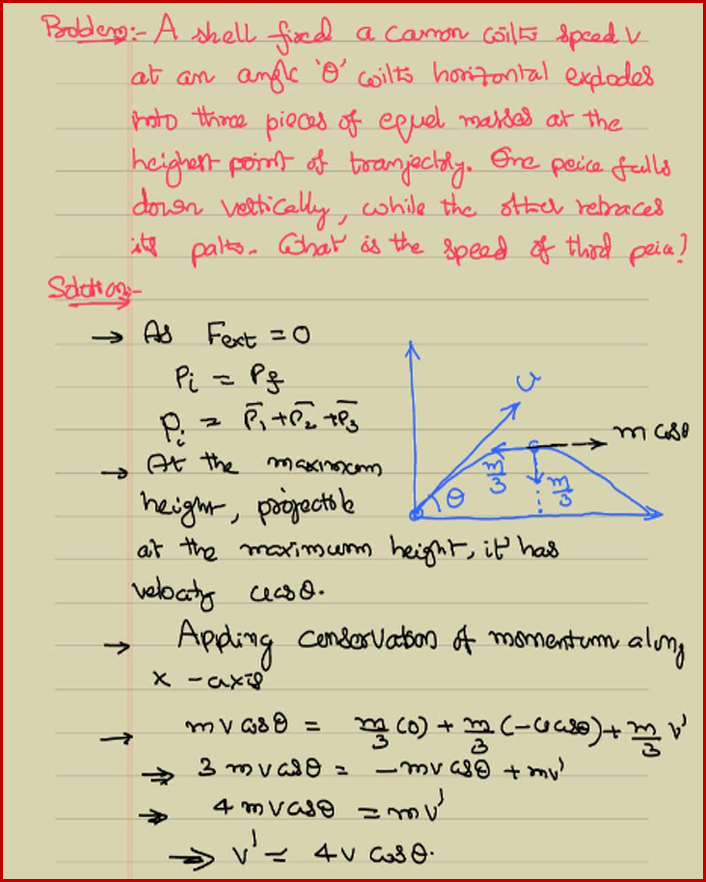 Problem:- A shell fired a cannon with speed v
at an angle 'θ' with horizontal explodes
into three pieces of equal masses at the
heighest point of tranjectory. One peice falls
down vertically, while the other retraces
its path. What is the speed of third peice?
Solution:-
→ As Fext = 0
Pi = Pf
Pi = P̅1 + P̅2 + P̅3
→ At the maximum
height, projectile
at the maximum height, it has
velocity ucosθ.
u
m cosθ
m/3
m/3
θ
→ Appling conservation of momentum along
x - axis
→ mv cosθ = m/3 (0) + m/3 (-ucosθ) + m/3 v'
⇒ 3 mv cosθ = -mv cosθ + mv'
⇒ 4 mv cosθ = mv'
⇒ v' = 4v cosθ.